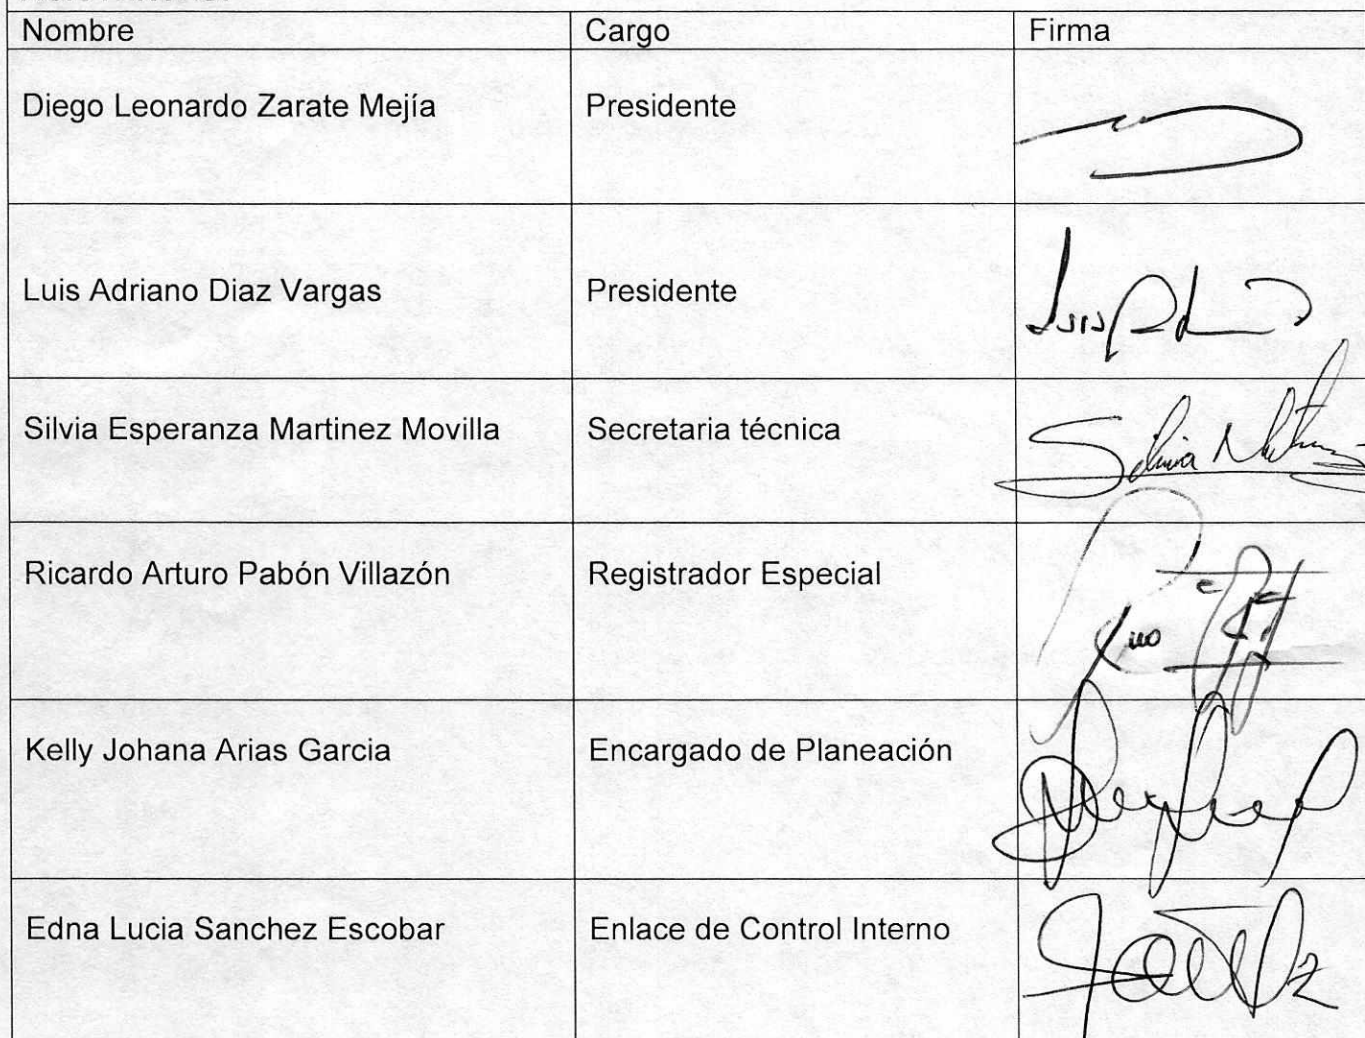 Nombre Cargo Firma
Diego Leonardo Zarate Mejía Presidente
Luis Adriano Diaz Vargas Presidente
Silvia Esperanza Martinez Movilla Secretaria técnica
Ricardo Arturo Pabón Villazón Registrador Especial
Kelly Johana Arias Garcia Encargado de Planeación
Edna Lucia Sanchez Escobar Enlace de Control Interno